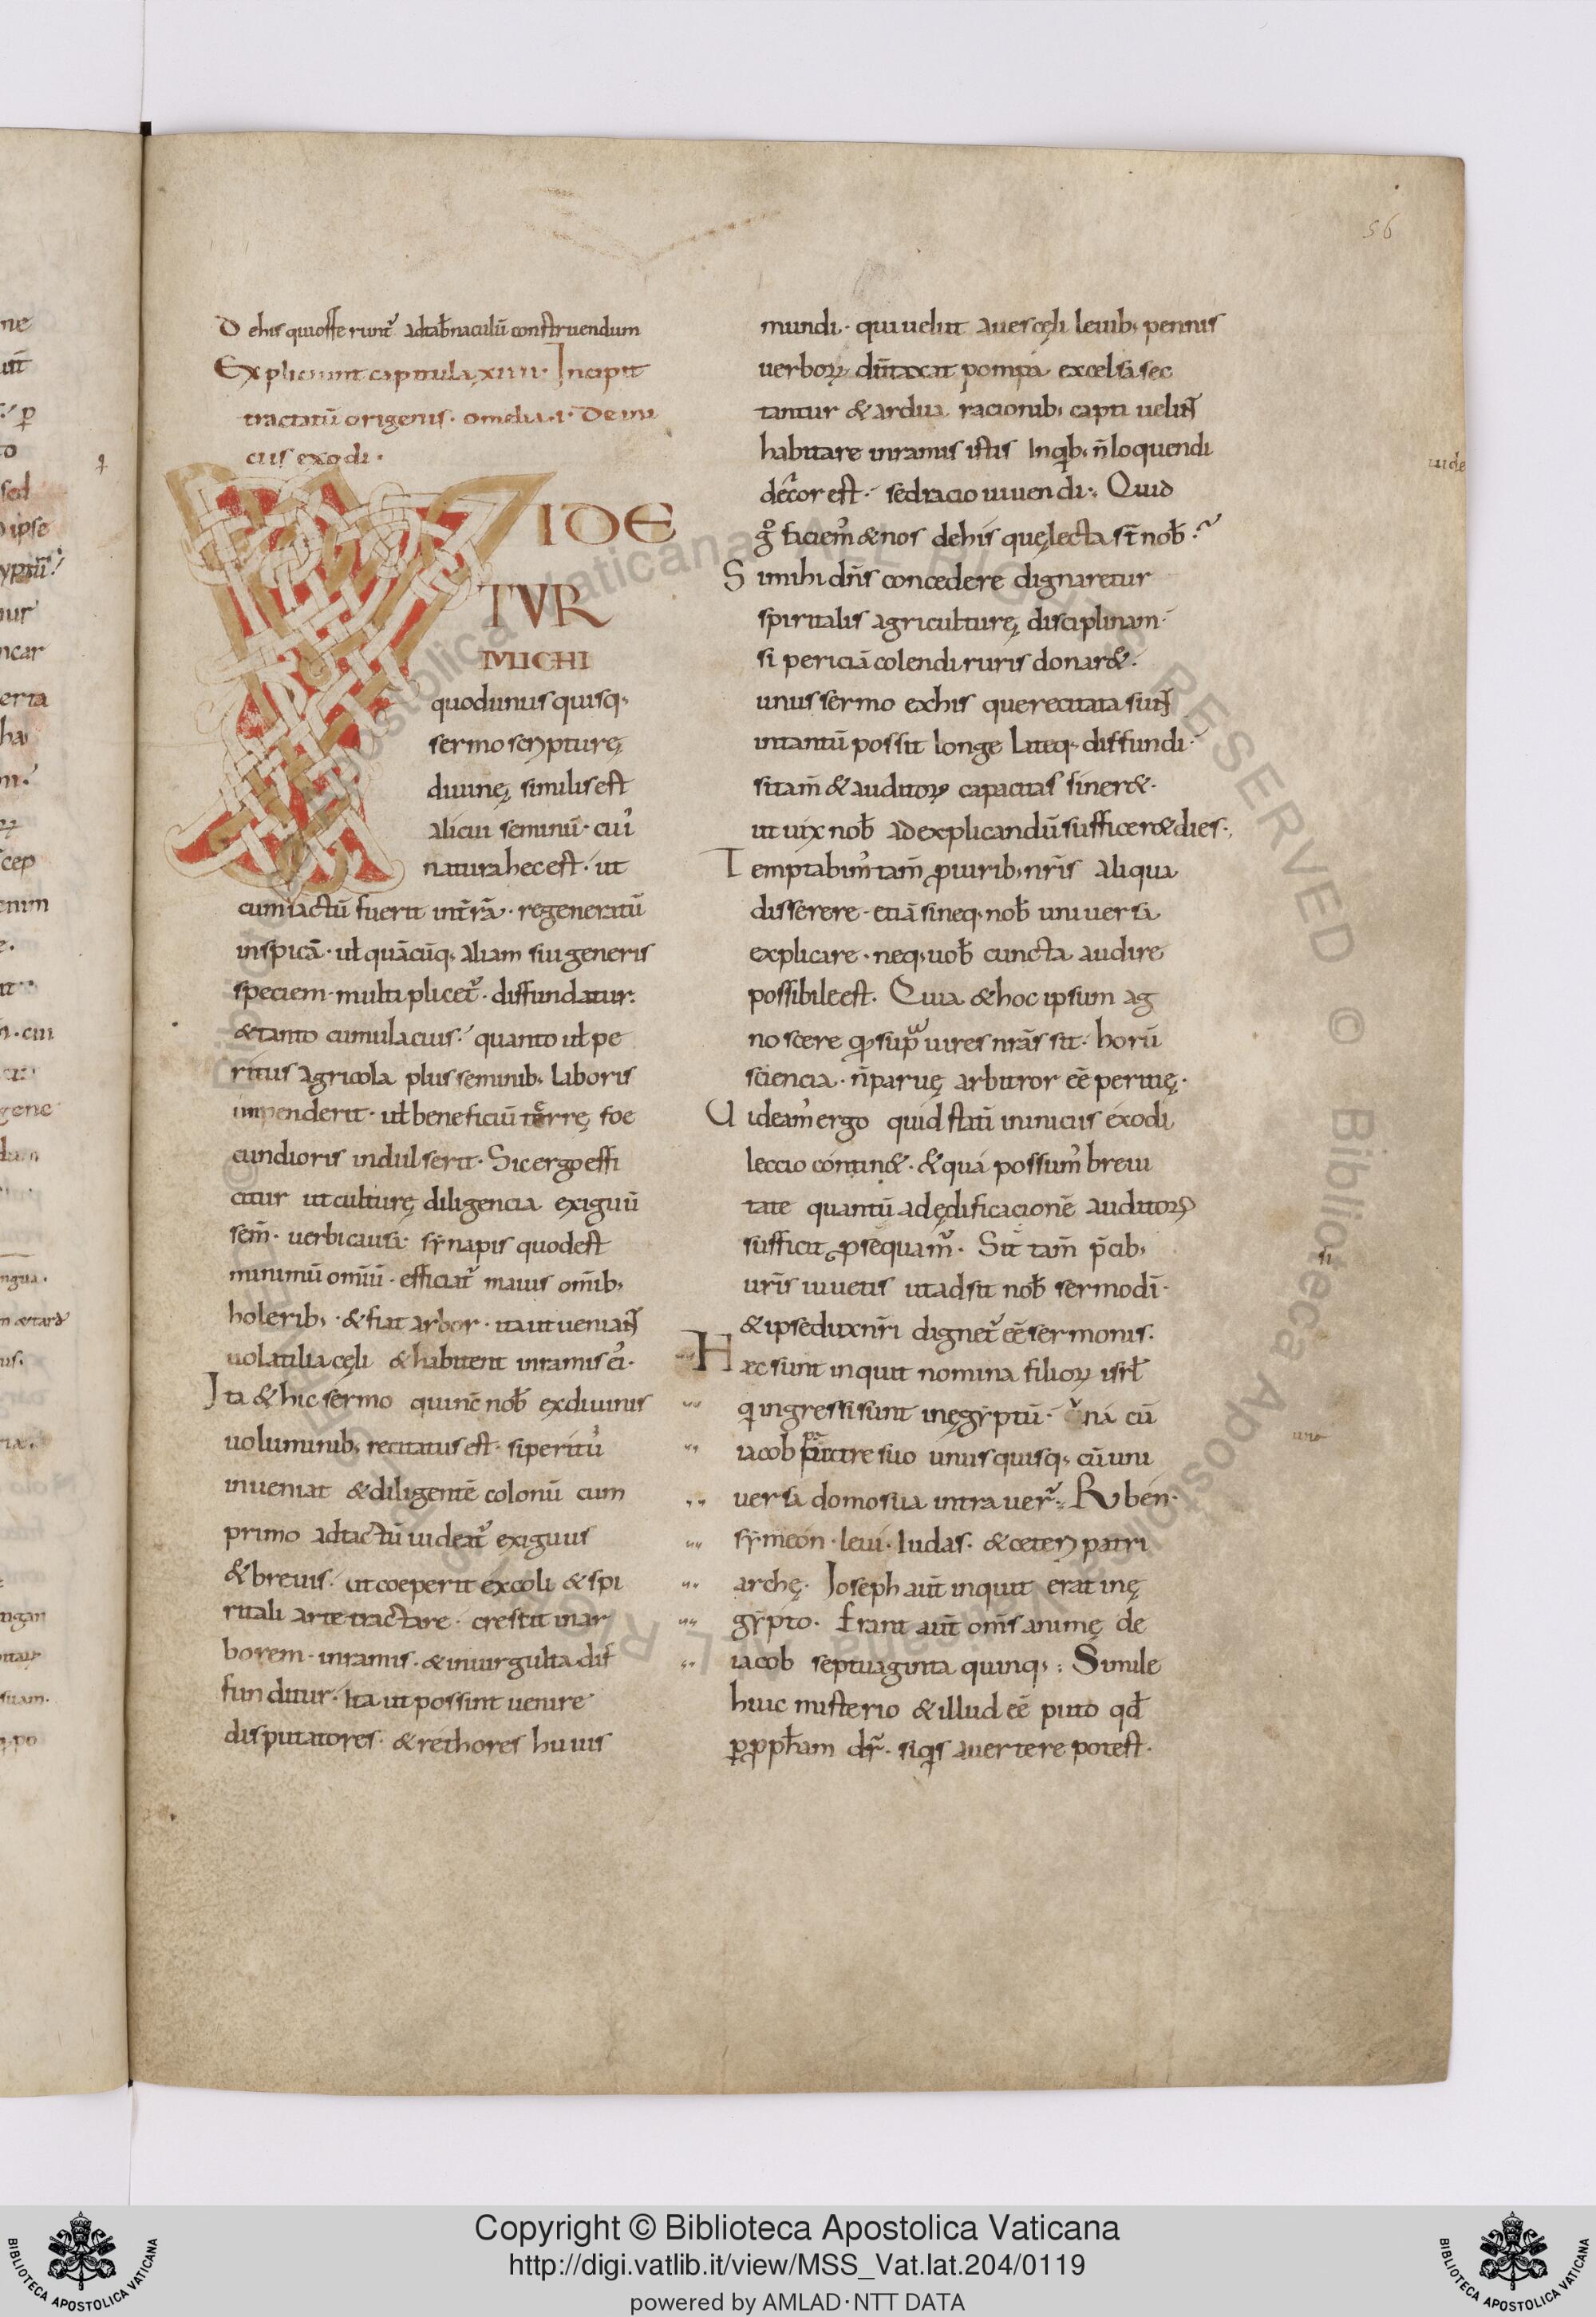 56
D ehis qui offerunt᷑ adtab̄naculū construendum
Expliciunt capitula xiiii· Incipit
tractatū origenis· omelia·i· De ini
ciis exodi·
VIDE
TVR
MICHI
quodunusquisq;
sermo scripturę
diuinę similis est
alicui seminū· cui᾽
natura hec est· ut
cum iactū fuerit in t̄rā· regeneratū
in spicā· ul̄ quācūq; aliam sui generis
speciem· multiplicet᷑· diffundatur·
& tanto cumulacius· quanto ul̄ pe
ritus agricola plus seminib; laboris
impenderit· ul̄ beneficiū terrę foe
cundioris indulserit· Sic ergo effi
citur ut culturę diligencia exiguū
sem̄· uerbi causa· synapis quod est
minimū omīū· efficiat᷑ maius om̄ib;
holerib;· & fiat arbor· ita ut ueniant
uolatilia cęli & habitent in ramis ei᾽·
Ita & hic sermo qui nc̄ nob̄ ex diuinis
uoluminib; recitatus est· si peritū
inueniat & diligentē colonū cum
primo ad tactū uideat᷑ exiguus
& breuis· ut coeperit excoli & spi
ritali arte tractare· crescit in ar
borem· in ramis· & in uirgulta dif
funditur· Ita ut possint uenire
disputatores· & rethores huius
mundi· qui uelut aues cęli leuib; pennis
uerboꝝ dūtaxat pompa excelsa sec
tantur & ardua racionib; capti uelint
habitare in ramis istis In qib; n̄ loquendi
decor est· sed racio uiuendi·, Quid
g̊ faciem᾽ & nos de his quę lecta st̄ nob̄·
Si mihi dn̄s concedere dignaretur
spiritalis agriculturę disciplinam·
si periciā colendi ruris donar&·
unus sermo ex his que recitata sunt
in tantū possit longe lateq; diffundi·
si tam̄ & auditoꝝ capacitas siner&·
ut uix nob̄ ad explicandū sufficer& dies·,
Temptabim᾽ tam̄ ꝓ uirib; nr̄is aliqua
disserere· etiā si neq; nob̄ uniuersa
explicare· neq; uob̄ cuncta audire
possibile est· Quia & hoc ipsum ag
noscere qđ supra uires nrās sit· horū
sciencia· n̄ paruę arbitror eē peritię·
Videam᾽ ergo quid statī in iniciis exodi
leccio contin&· & qua possum᾽ breui
tate quantū ad ędificacionē auditoꝝ
sufficit ꝓsequam᷑· Sit tam̄ p̄cib;
ur̄is iuuetis ut adsit nob̄ sermo dī·
& ipse dux nr̄i dignet᷑ eē sermonis·
Hec sunt inquit nomina filioꝝ isrl̄
qi ingressi sunt in ęgyptū· una cū
iacob patre suo unusquisq; cū uni
uersa domo sua intrauer᷑·, Ruben·
symeon· leui· Iudas· & ceteri patri
archę· Ioseph aut̄ inquit erat in ę
gypto· Erant aut̄ om̄s animę de
iacob septuaginta quinq;·, Simile
huic misterio & illud eē puto qđ
ꝑ ꝓph̄am dr᷑· si qis auertere potest·
uide
si
una
Copyright © Biblioteca Apostolica Vaticana
http://digi.vatlib.it/view/MSS_Vat.lat.204/0119
powered by AMLAD·NTT DATA
BIBLIOTECA APOSTOLICA VATICANA
BIBLIOTECA APOSTOLICA VATICANA